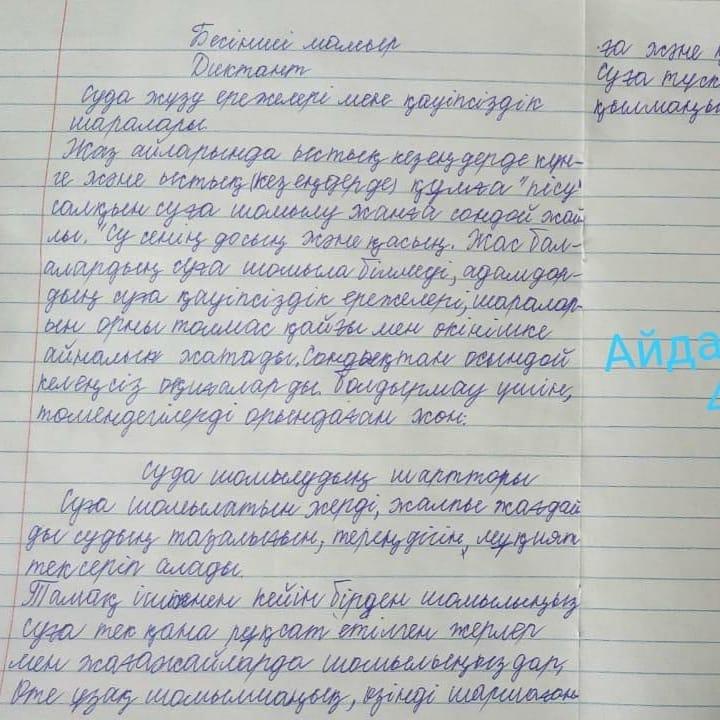 Бесінші мамыр
Диктант
Суда жүзу ережелері мен қауіпсіздік
шаралары.
Жаз айларында ыстық кезеңдерде күн-
ге және ыстық (кезеңдерде) құмға "пісу"
салқын суға шомылу жанға сондай жай
лы. "Су сенің досың және қасың. Жас бал-
алардың суға шомыла білмеді, адамдар-
дың суға қауіпсіздік ережелері, шаралар-
ын орны толмас қайғы мен өкінішке
айналып жатады. Сондықтан осындай
келеңсіз оқиғаларды болдырмау үшін,
төмендегілерді орындаған жөн.
Суда шомылудың шартторы
Суға шомылатын жерді, жалпы жағдай
ды судың тазалығын, тереңдігін, мұқият
тексеріп алады.
Тамақ ішкеннен кейін бірден шомылыңыз
суға тек қана рұқсат етілген жерлер
мен жағажайларда шомылыңыздар,
Өте ұзақ шомылмаңық, өзінді шаршаған
ға және қ
Суға түск
қылмаңы
Айда